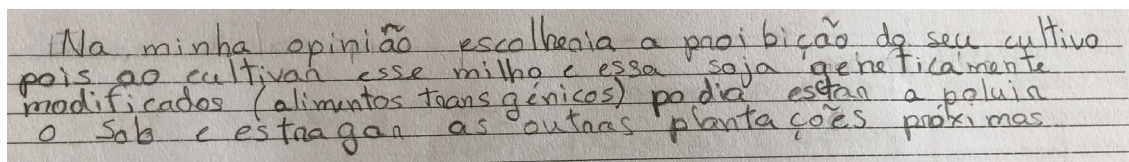 Na minha opinião escolheria a proibição do seu cultivo
pois ao cultivar esse milho e essa soja geneticamente
modificados (alimentos transgénicos) podia estar a poluir
o solo e estragar as outras plantações próximas